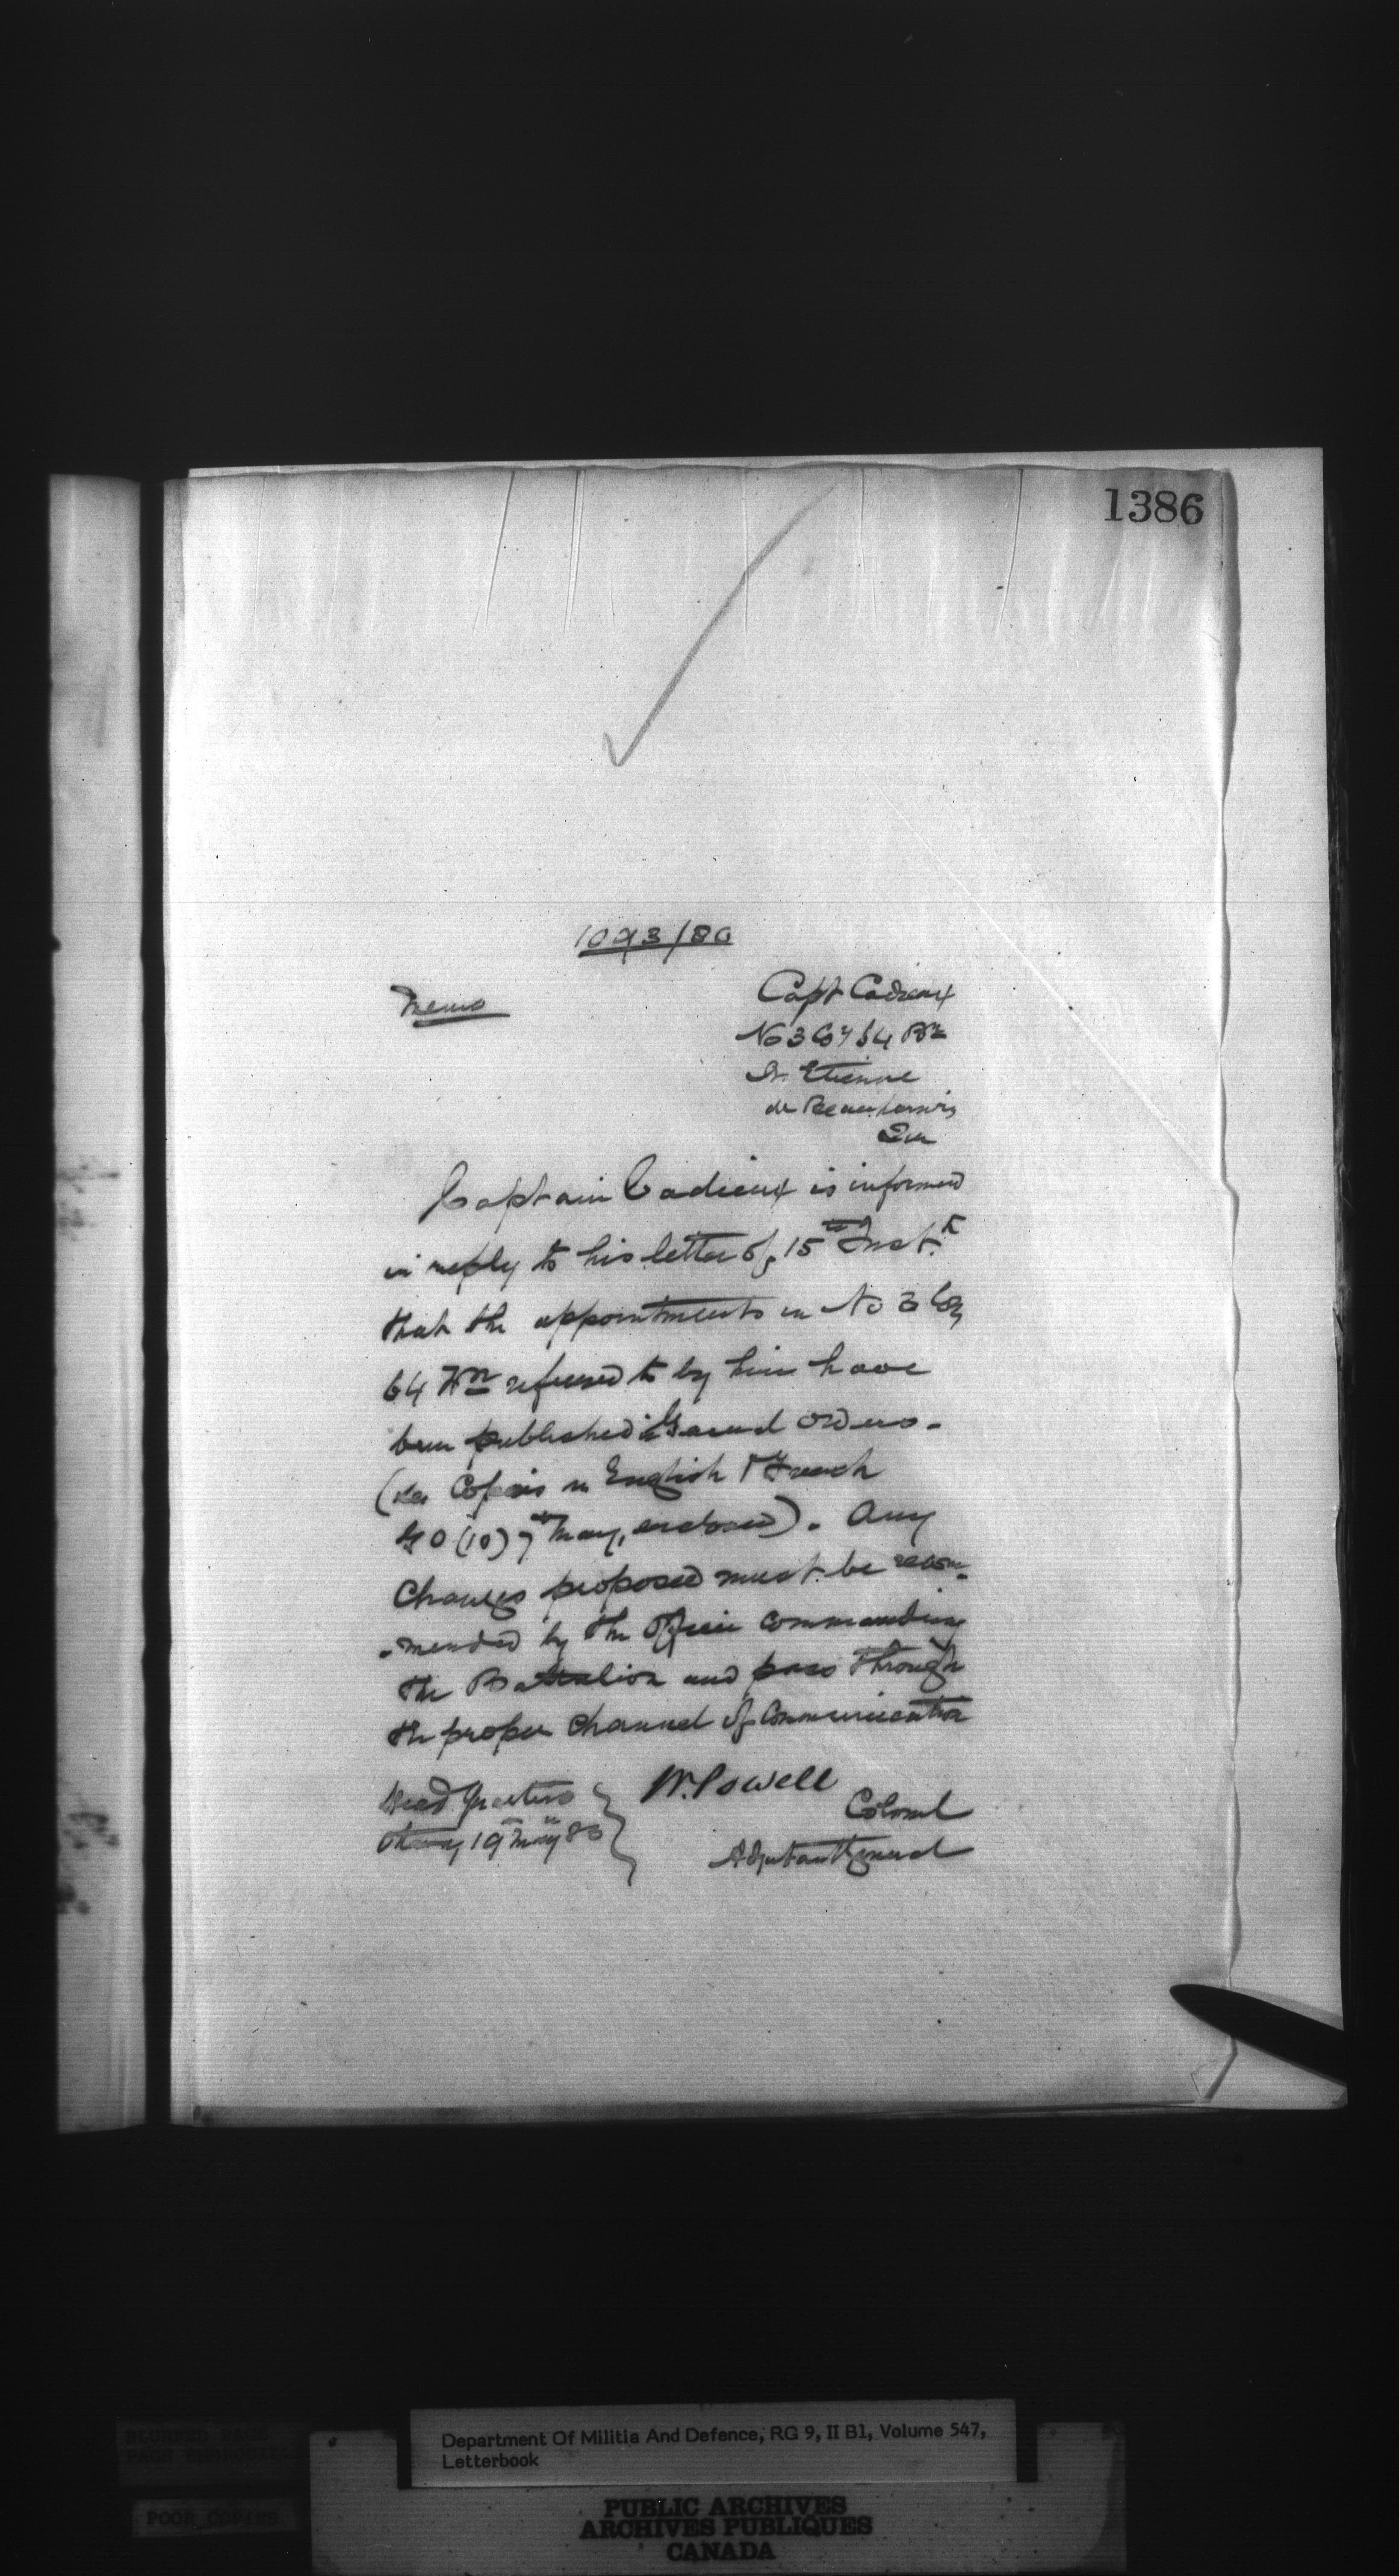 1386
1093/80
Memo
Capt Cadieux
No 3 Coy 64 Bn
St. Etienne
de Beauharnois
Que
Captain Cadieux is informed
in reply to his letter of 15th Inst.
that the appointments in No 3 Coy
64 Bn referred to by him have
been published in General Orders.
(see Copies in English & French
GO (10) 7th May, enclosed). Any
Changes proposed must be recom-
-mended by the Officer Commanding
the Battalion and pass through
the proper Channel of Communication
Head Quarters
Ottawa 19th May 80
W. Powell
Colonel
Adjutant General
BLURRED PAGE
PAGE EMBROUILLÉE
POOR COPIES
Department Of Militia And Defence, RG 9, II B1, Volume 547,
Letterbook
PUBLIC ARCHIVES
ARCHIVES PUBLIQUES
CANADA